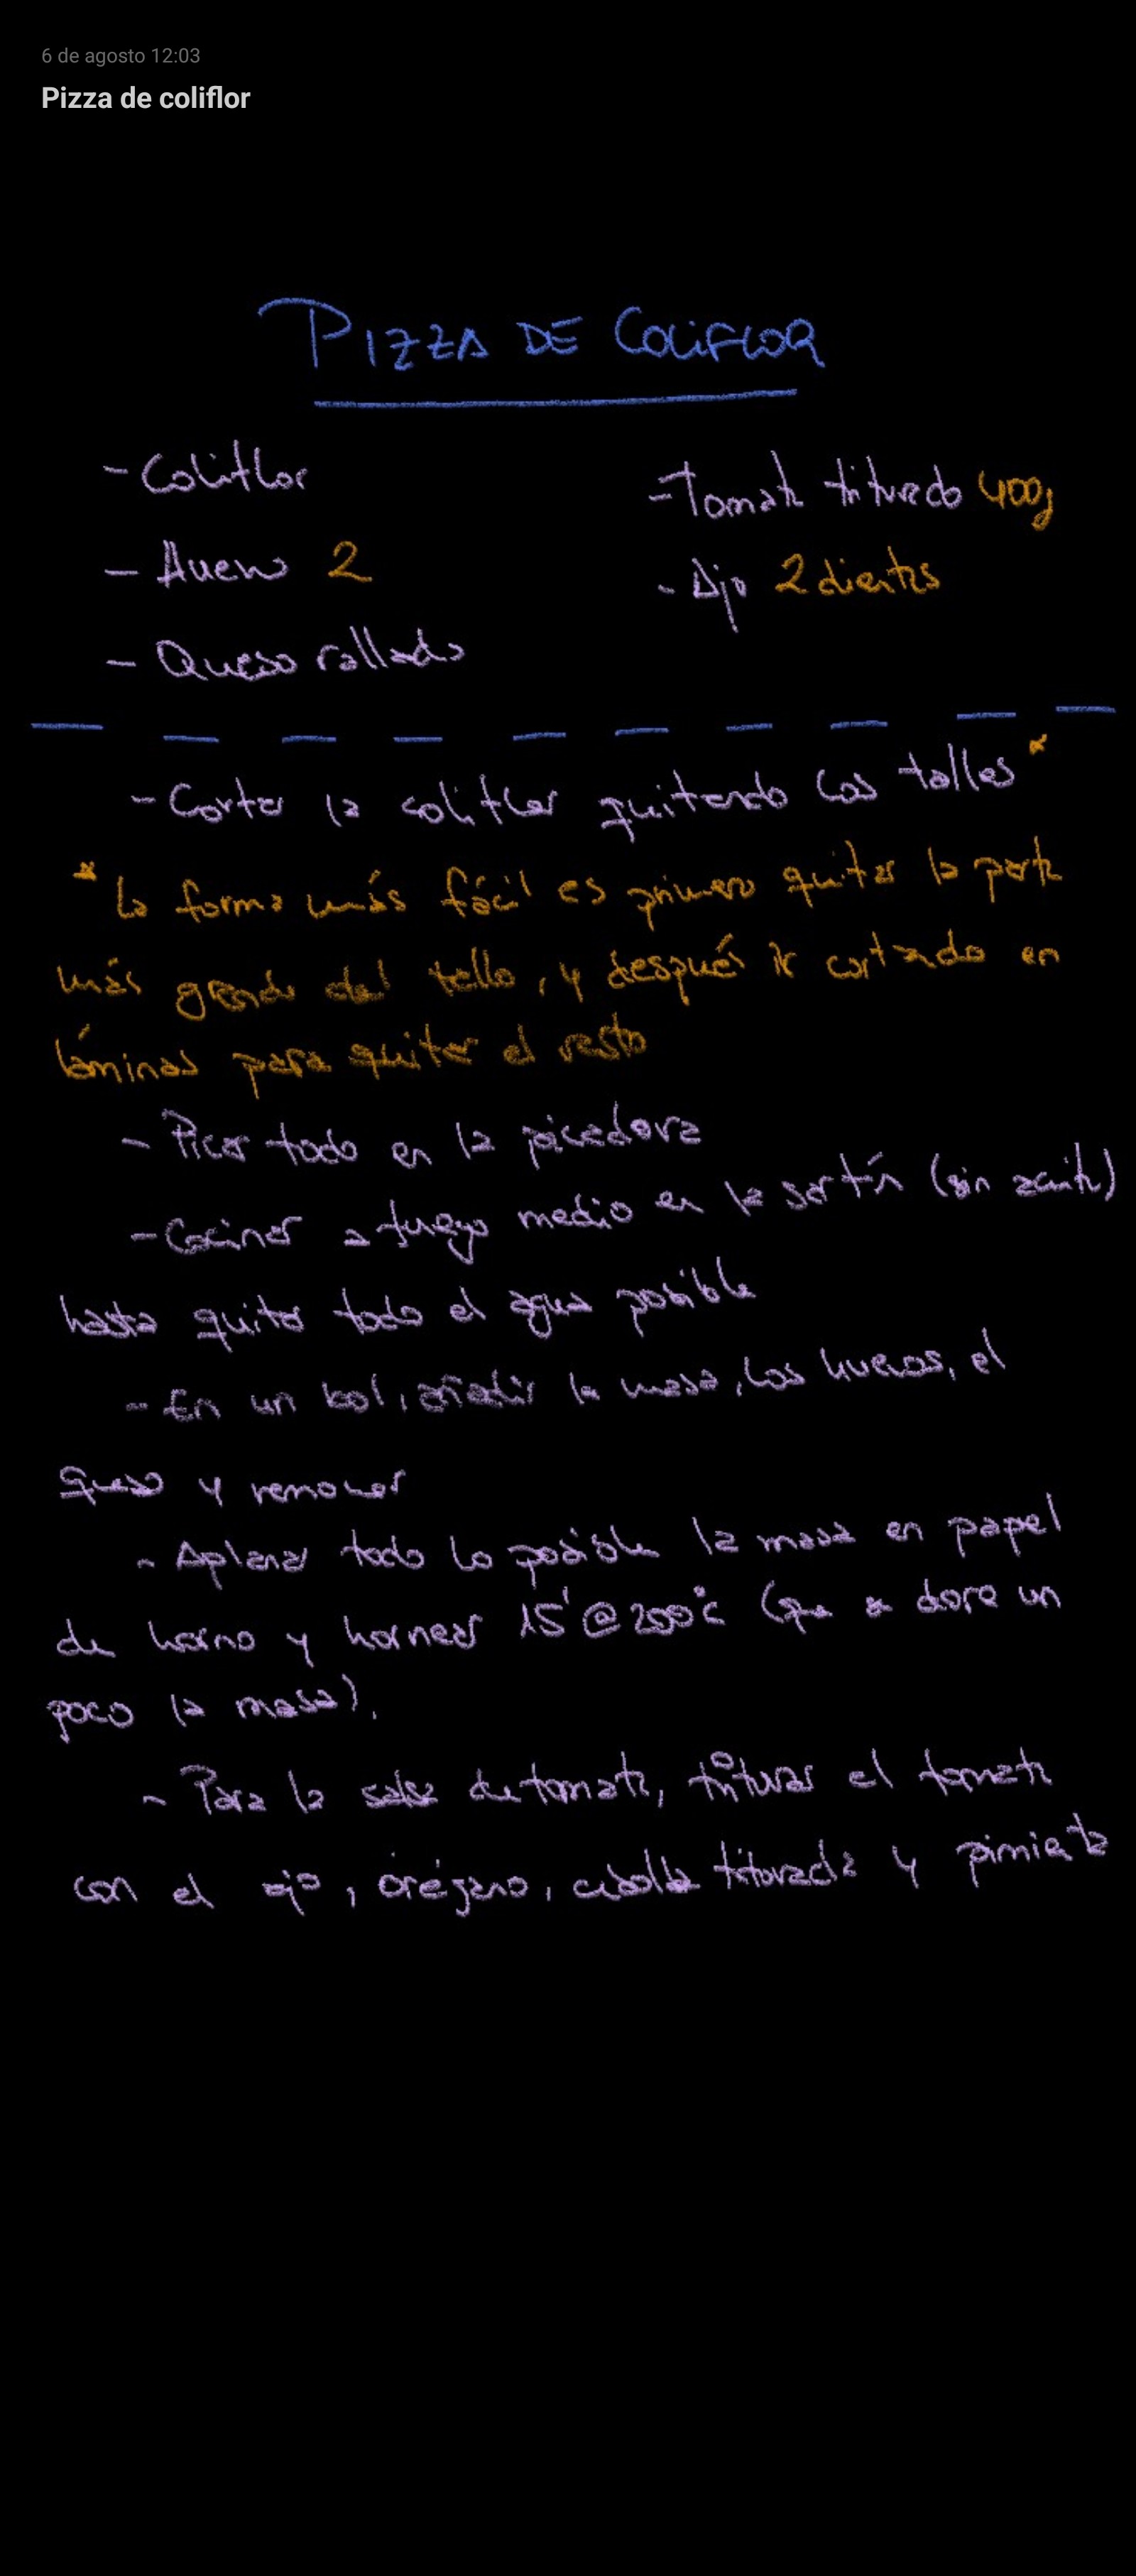 6 de agosto 12:03
Pizza de coliflor
PIZZA DE COLIFLOR
- Coliflor
- Tomate triturado 400g
- Huevo 2
- Ajo 2 dientes
- Queso rallado
- Cortar la coliflor quitando los tallos *
* La forma más fácil es primero quitar la parte
más grande del tallo, y después ir cortando en
láminas para quitar el resto
- Picar todo en la picadora
- Cocinar a fuego medio en la sartén (sin aceite)
hasta quitar todo el agua posible
- En un bol, añadir la masa, los huevos, el
queso y remover
- Aplanar todo lo posible la masa en papel
de horno y hornear 15' @ 200°C (que se dore un
poco la masa).
- Para la salsa de tomate, triturar el tomate
con el ajo, orégano, cebolla triturada y pimienta